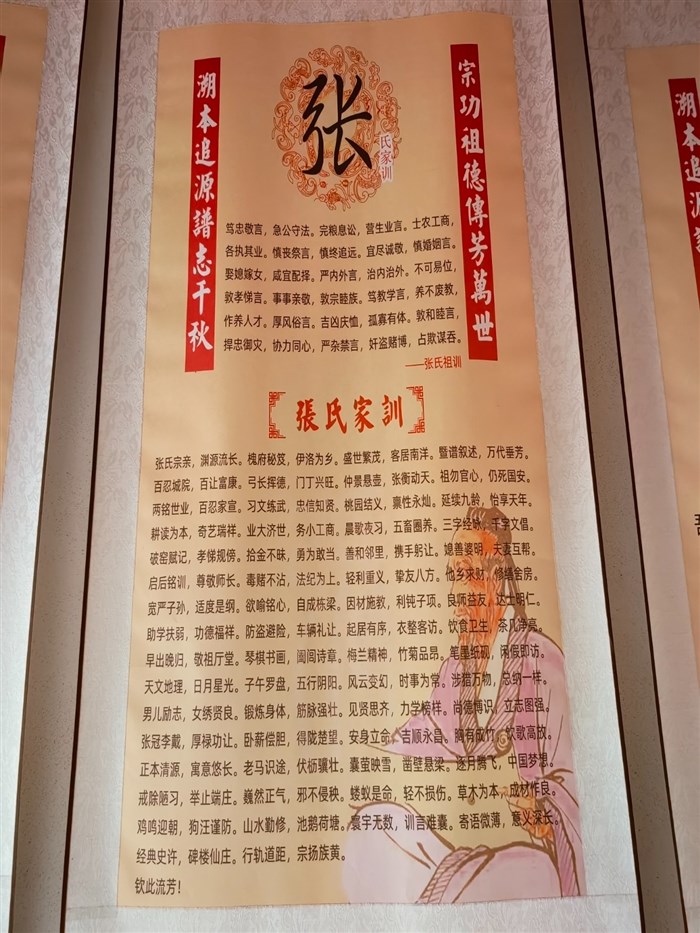 张
氏家训
溯本追源譜志千秋
宗功祖德傳芳萬世
笃忠敬言，急公守法。完粮息讼，营生业言。士农工商，
各执其业。慎丧祭言，慎终追远。宜尽诚敬，慎婚姻言。
娶媳嫁女，咸宜配择。严内外言，治内治外。不可易位，
敦孝悌言。事事亲敬，敦宗睦族。笃教学言，养不废教，
作养人才。厚风俗言。吉凶庆恤，孤寡有体。敦和睦言，
捍忠御灾，协力同心，严杂禁言，奸盗赌博，占欺谋吞。
——张氏祖训
張氏家訓
张氏宗亲，渊源流长。槐府秘笈，伊洛为乡。盛世繁茂，客居南洋。暨谱叙述，万代垂芳。
百忍城院，百让富康。弓长挥德，门丁兴旺。仲景悬壶，张衡动天。祖勿官心，仍死国安。
两铭世业，百忍家宣。习文练武，忠信知贤。桃园结义，禀性永灿。延续九龄，怡享天年。
耕读为本，奇艺瑞祥。业大济世，务小工商。晨歌夜习，五畜圈养。三字经咏，千字文倡。
破窑赋记，孝悌规傍。拾金不昧，勇为敢当。善和邻里，携手躬让。媳善婆明，夫妻互帮。
启后铭训，尊敬师长。毒赌不沾，法纪为上。轻利重义，挚友八方。他乡求财，修缮舍房。
宽严子孙，适度是纲。欲喻铭心，自成栋梁。因材施教，利钝子项。良师益友，达士明仁。
助学扶弱，功德福祥。防盗避险，车辆礼让。起居有序，衣整客访。饮食卫生，茶几净亮。
早出晚归，敬祖厅堂。琴棋书画，阖闾诗章。梅兰精神，竹菊品昂。笔墨纸砚，闲假即访。
天文地理，日月星光。子午罗盘，五行阴阳。风云变幻，时事为常。涉猎万物，总纳一样。
男儿励志，女绣贤良。锻炼身体，筋脉强壮。见贤思齐，力学榜样。尚德博识，立志图强。
张冠李戴，厚禄功让。卧薪偿胆，得陇楚望。安身立命，吉顺永昌。胸有成竹，饮歌高放。
正本清源，寓意悠长。老马识途，伏枥骥壮。囊萤映雪，凿壁悬梁。逐月腾飞，中国梦想。
戒除陋习，举止端庄。巍然正气，邪不侵秧。蝼蚁是命，轻不损伤。草木为本，成材作良。
鸡鸣迎朝，狗汪谨防。山水勤修，池鹅荷塘。寰宇无数，训言难囊。寄语微薄，意义深长。
经典史许，碑楼仙庄。行轨道距，宗扬族黄。
钦此流芳！